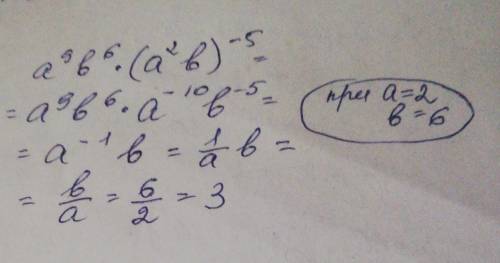 a⁹b⁶·(a²b)⁻⁵=
=a⁹b⁶·a⁻¹⁰b⁻⁵=
=a⁻¹b=1/a b=
=b/a=6/2=3
при a=2
b=6